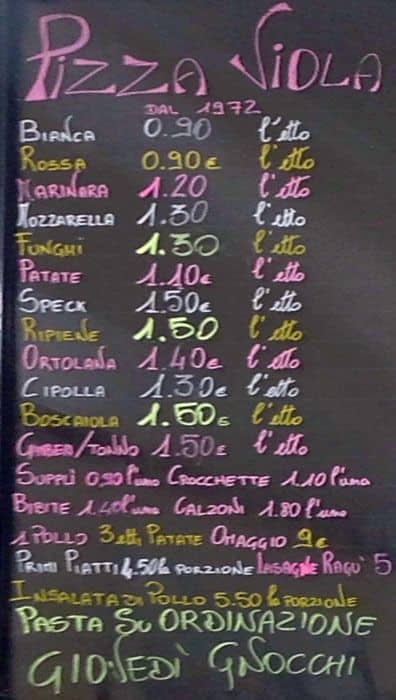 PIZZA VIOLA
DAL 1972
BIANCA 0.90 l'etto
ROSSA 0.90€ l'etto
MARINARA 1.20 l'etto
MOZZARELLA 1.30 l'etto
FUNGHI 1.30 l'etto
PATATE 1.10€ l'etto
SPECK 1.50€ l'etto
RIPIENE 1.50 l'etto
ORTOLANA 1.40€ l'etto
CIPOLLA 1.30€ l'etto
BOSCAIOLA 1.50€ l'etto
GAMBER/TONNO 1.50€ l'etto
SUPPLÌ 0,90 l'uno CROCCHETTE 1.10 l'una
BIBITE 1.40 l'uno CALZONI 1.80 l'uno
1 POLLO 3 etti PATATE OMAGGIO 9€
PRIMI PIATTI 4.50 la PORZIONE LASAGNE RAGÙ 5
INSALATA DI POLLO 5.50 la PORZIONE
PASTA SU ORDINAZIONE
GIOVEDÌ GNOCCHI